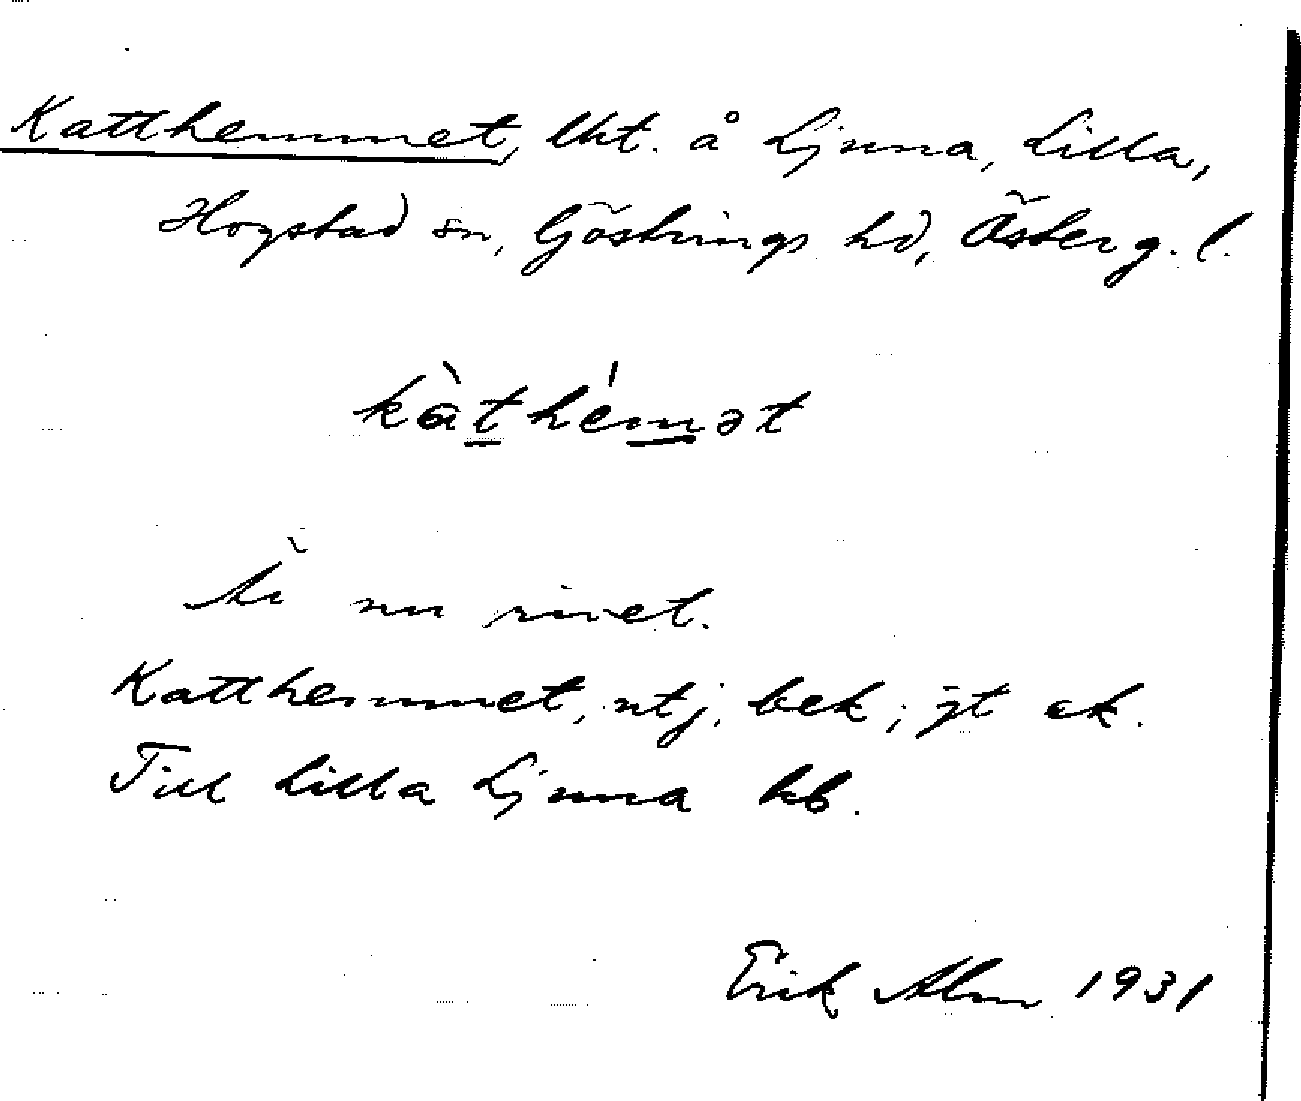 Katthemmet, lht. å Ljuna, Lilla,
Hogstad sn, Göstrings hd, Österg. l.
kàthémət
Är nu rivet.
Katthemmet, utj. bek; jt ek.
Till Lilla Ljuna hb.
Erik Alm 1931